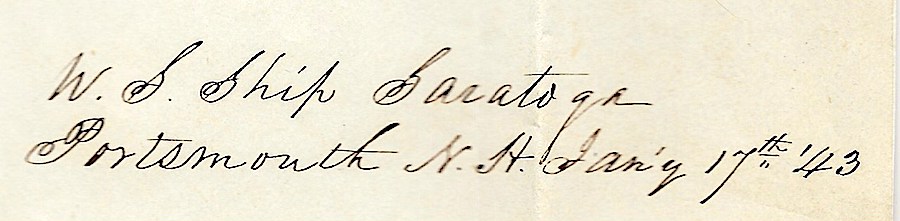 U. S. Ship Saratoga
Portsmouth N. H. Jan'y 17th '43